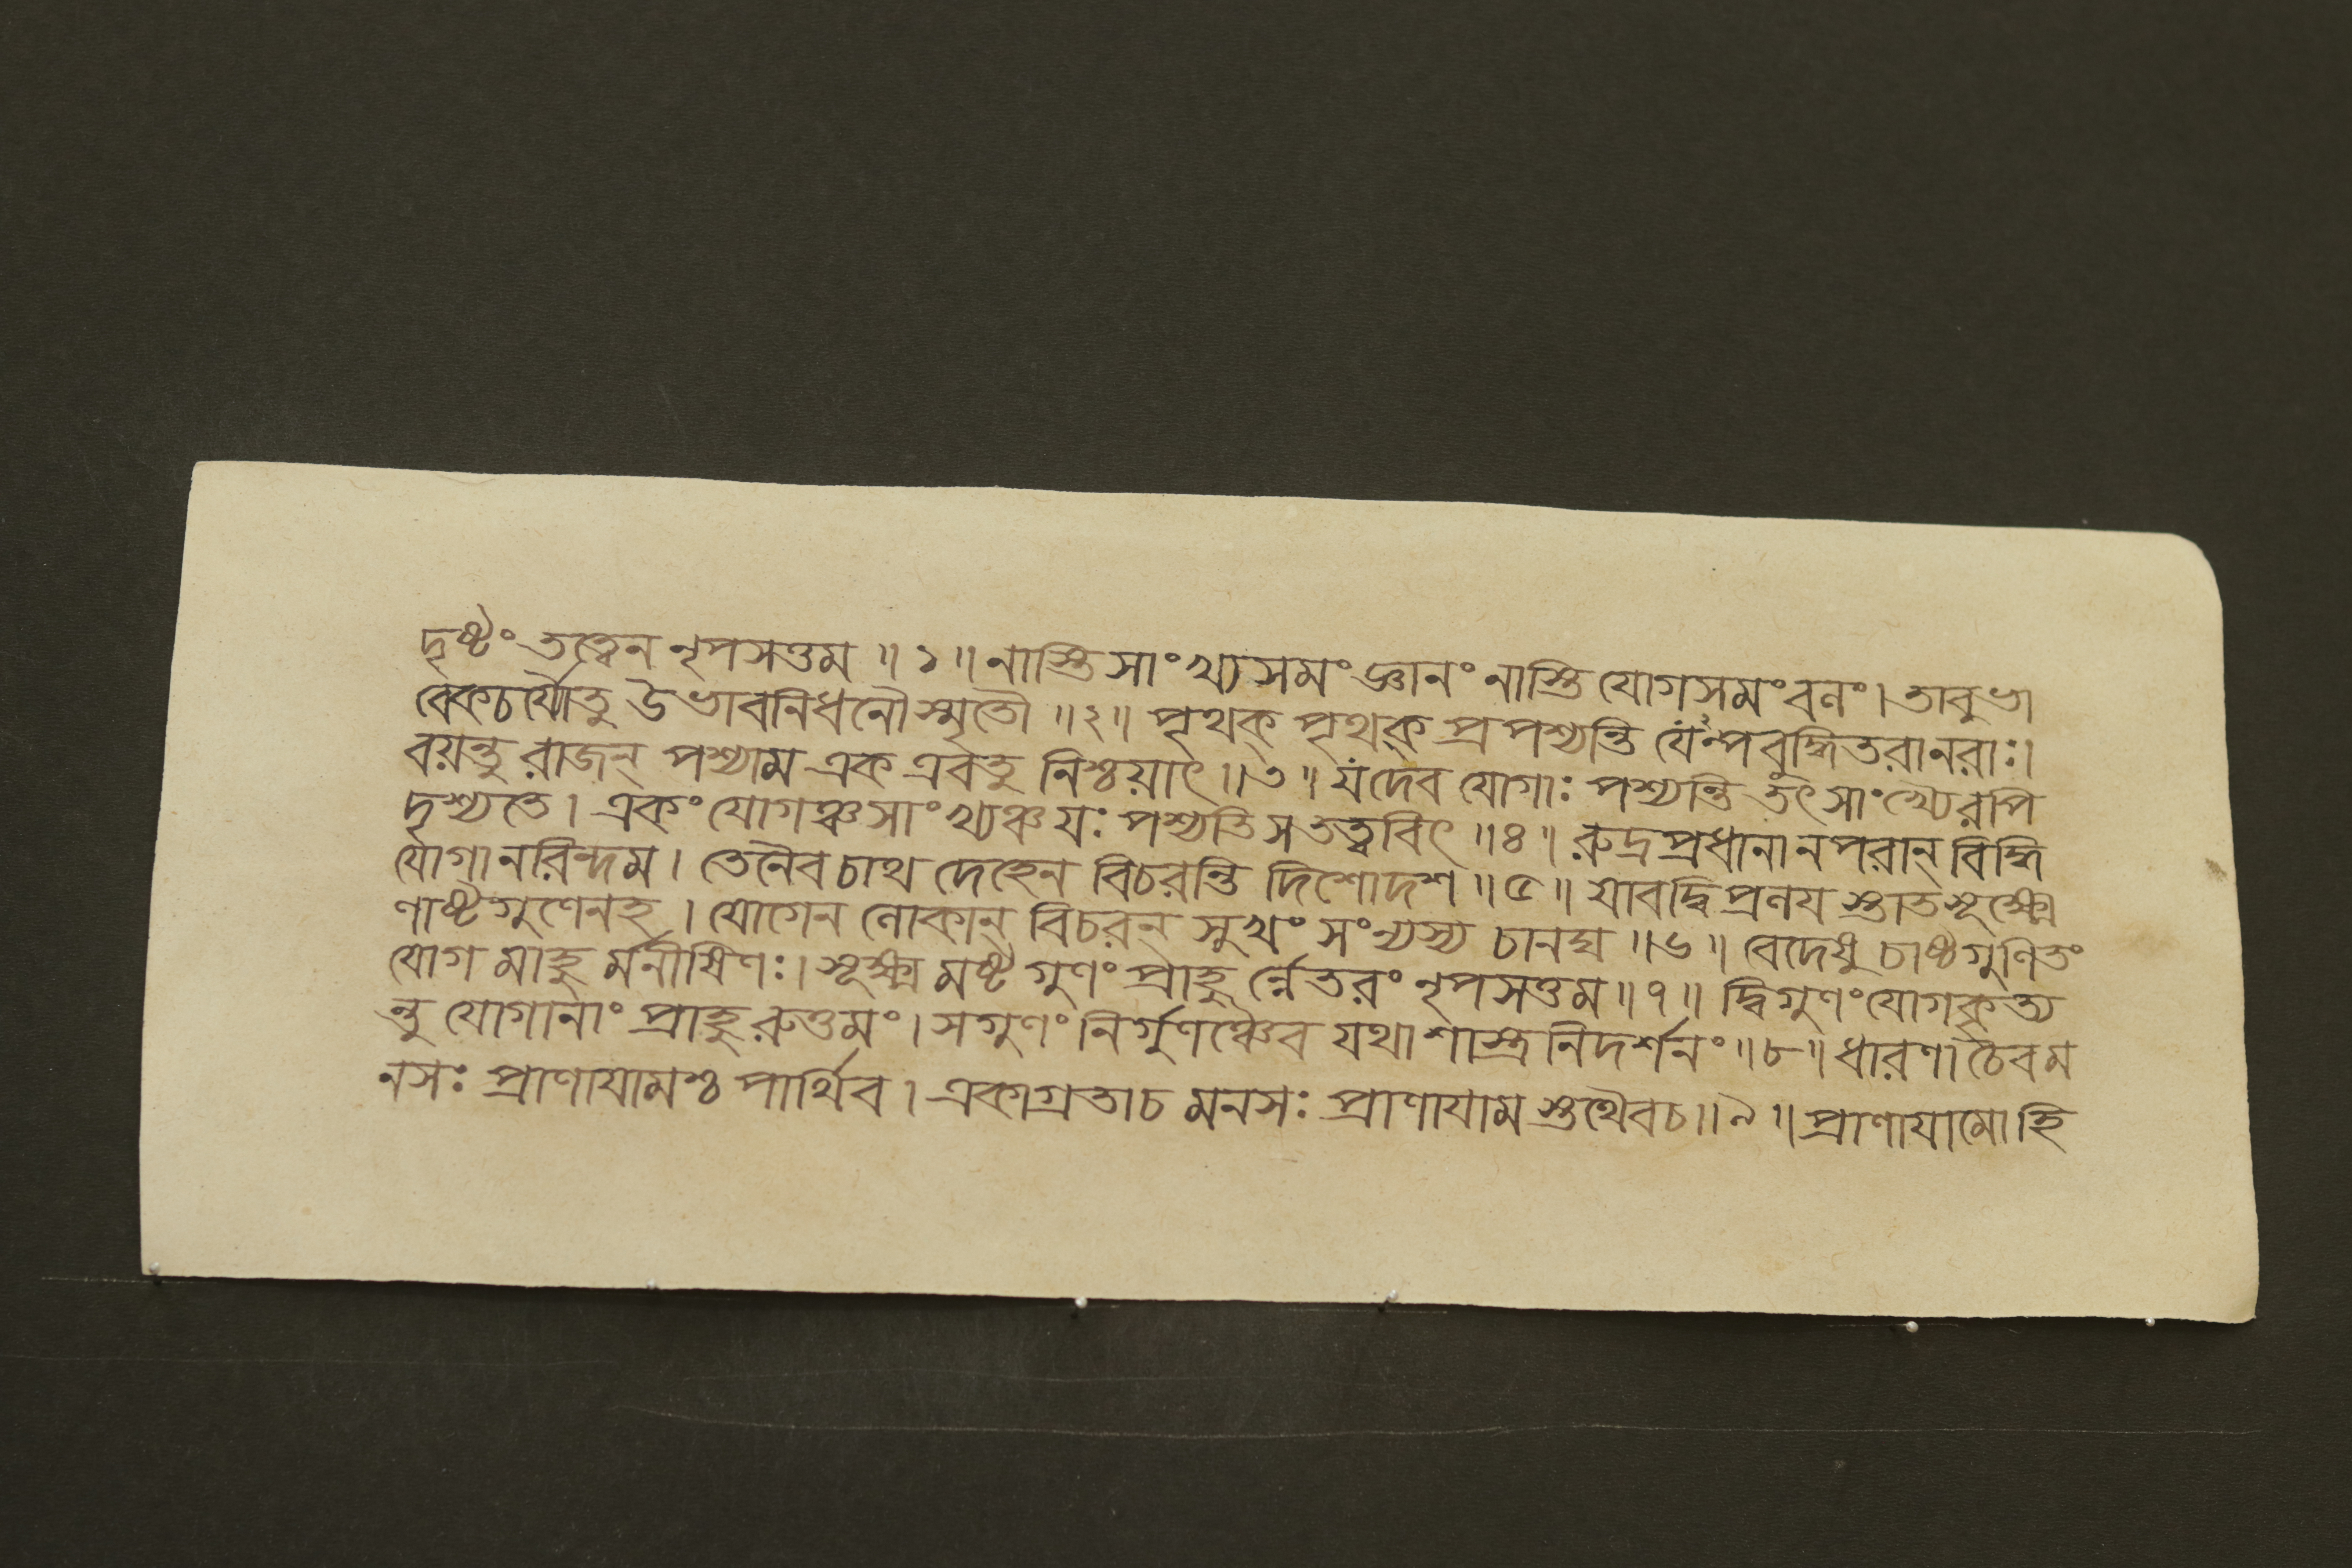 দৃষ্টং তত্ত্বেন নৃপসত্তম ॥ ১ ॥ নাস্তি সাংখ্যসমং জ্ঞানং নাস্তি যোগসমং বলং। তাবুভা
বেকচর্যৌতু উভাবনিধনৌ স্মৃতৌ ॥২॥ পৃথক্ পৃথক্ প্রপশ্যন্তি নরাঃ।
বয়ন্তু রাজন্ পশ্যাম এক এবতু নিশ্চয়াৎ ॥৩॥ যদেব যোগাঃ পশ্যন্তি তৎ সাংখ্যৈরপি
দৃশ্যতে। একং যোগঞ্চসাংখ্যঞ্চ যঃ পশ্যতি স তত্ত্ববিৎ ॥৪॥ রুদ্রপ্রধানানপরান্ বিদ্ধি
যোগানরিন্দম। তেনৈব চাথ দেহেন বিচরন্তি দিশোদশ ॥৫॥ যাবদ্ধি প্রলয স্তাত সূক্ষ্মে
ণাষ্টগুণেনহ। যোগেন লোকান্ বিচরন্ সুখং সংন্যস্য চানঘ ॥৬॥ বেদেষু চাষ্টগুণিতং
যোগ মাহু র্মনীষিণঃ। সূক্ষ্ম মষ্টগুণং প্রাহু র্নেতরং নৃপসত্তম ॥৭॥ দ্বিগুণং যোগকৃত্য
ন্তু যোগানাং প্রাহু রুত্তমং। সগুণং নির্গুণঞ্চৈব যথাশাস্ত্রনিদর্শনং ॥৮॥ ধারণা চৈবম
নসঃ প্রাণাযামশ্চ পার্থিব। একাগ্রতাচ মনসঃ প্রাণাযাম স্তথৈবচ॥৯॥ প্রাণাযামোহি